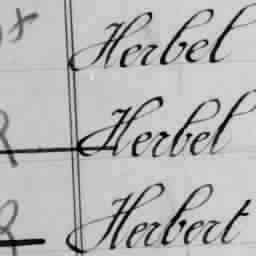 Herbel
Herbel
Herbert